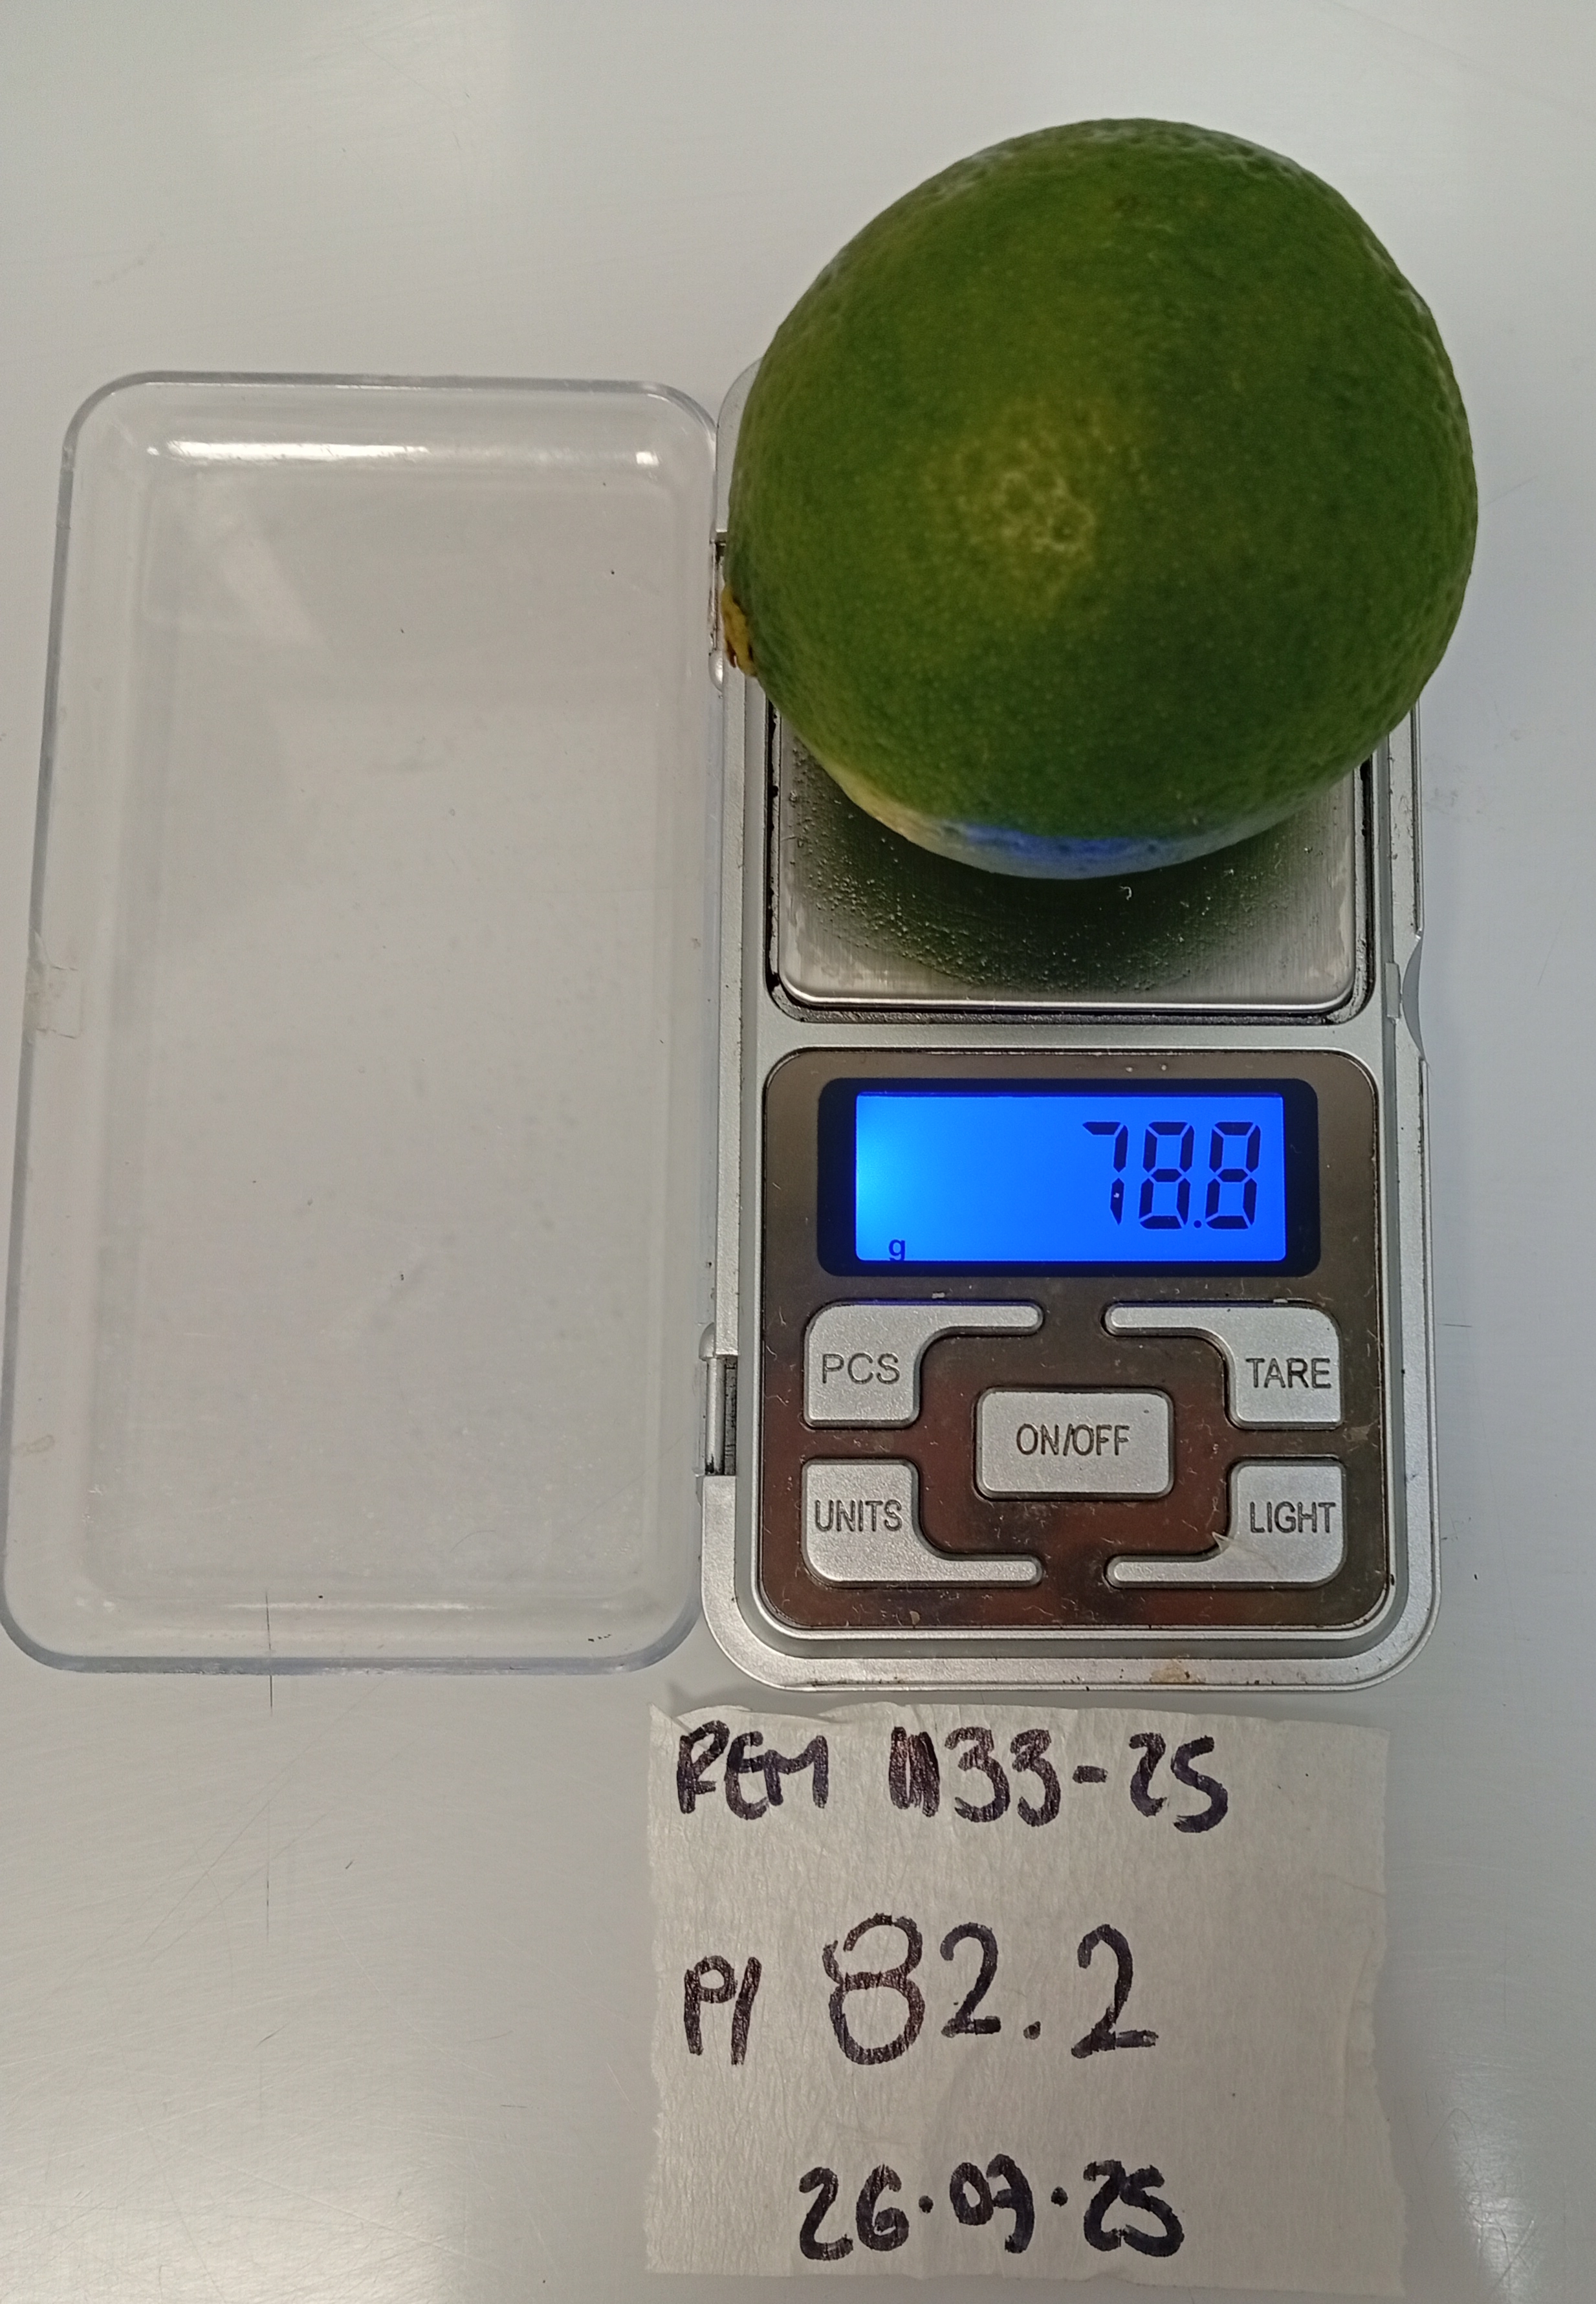 78.8
g
PCS
TARE
ON/OFF
UNITS
LIGHT
REM 1133-25
P/ 82.2
26.07.25